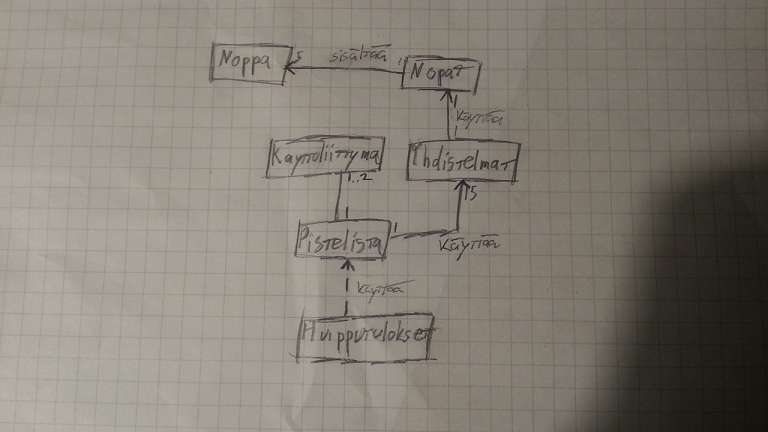 Noppa
5
sisältää
1
Nopat
1
käyttää
1
Käyttoliittyma
Yhdistelmat
1..2
15
1
Pistelista
1
Käyttää
käyttää
Huipputulokset